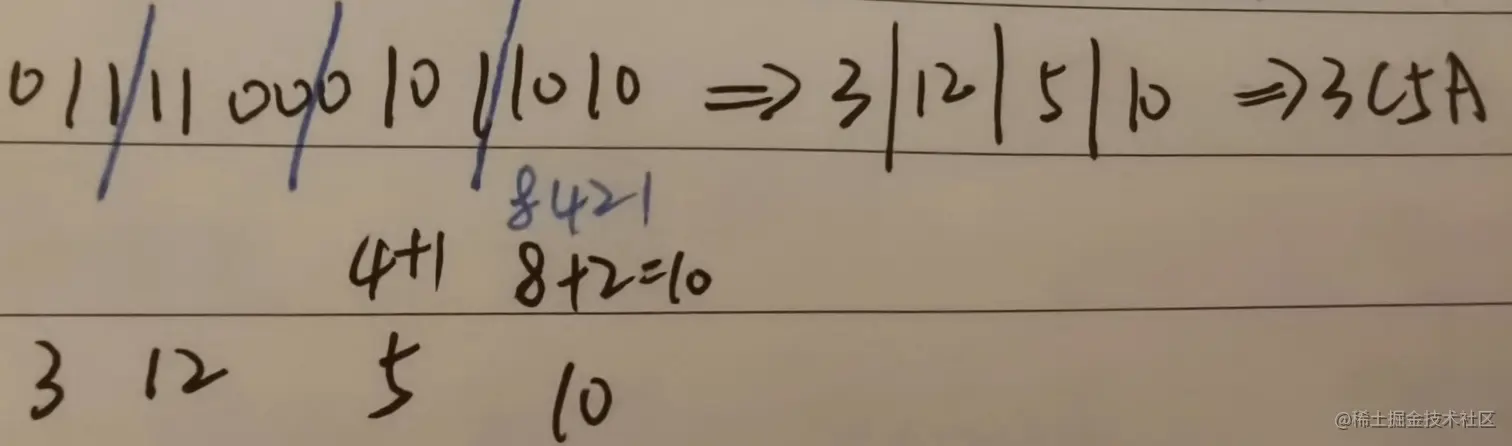 011/1100/0101/1010 ⇒ 3|12|5|10 ⇒ 3C5A
8421
4+1 8+2=10
3 12 5 10
@稀土掘金技术社区